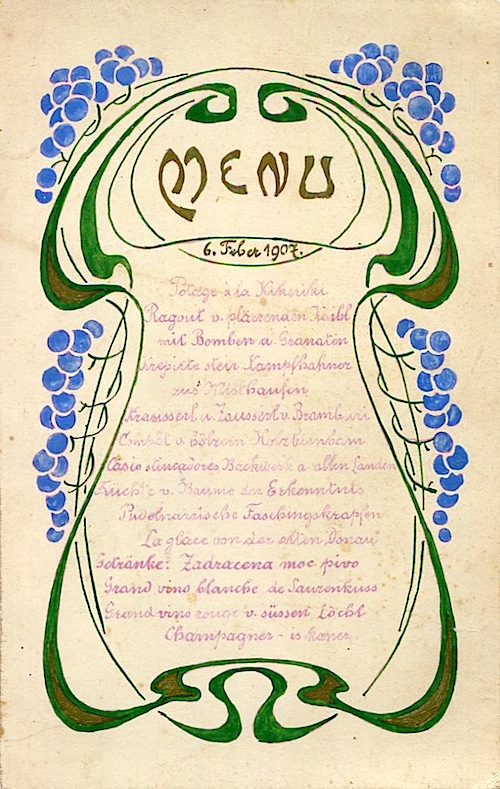 MENU
6. Feber 1907.
Potage à la Kikeriki
Ragout v. plärrenden Kaibl
mit Bomben u. Granaten
Krepirte steir. Kampfhahner
aus Misthaufen
Krausserl u. Zausserl v. Bramburi
Compôt v. hölzern Holzbirnbam
Casio stincadores Backwerk a. allen Landen
Früchte v. Baume der Erkenntnis
Pudelnärrische Faschingskrapfen
La glace von der alten Donau
Getränke: Zadracena moc pivo
Grand vino blanche de Saurenkuss
Grand vino rouge v. süssen Löchl
Champagner - is kaner.